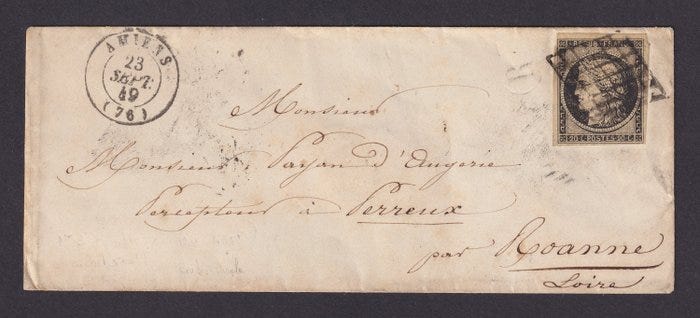 AMIENS
23
SEPT.
49
(76)
REPUB. FRANC.
20 C POSTES 20 C
Monsieur
Monsieur Payan d'Augerie
Percepteur à Perreux
par Roanne
Loire